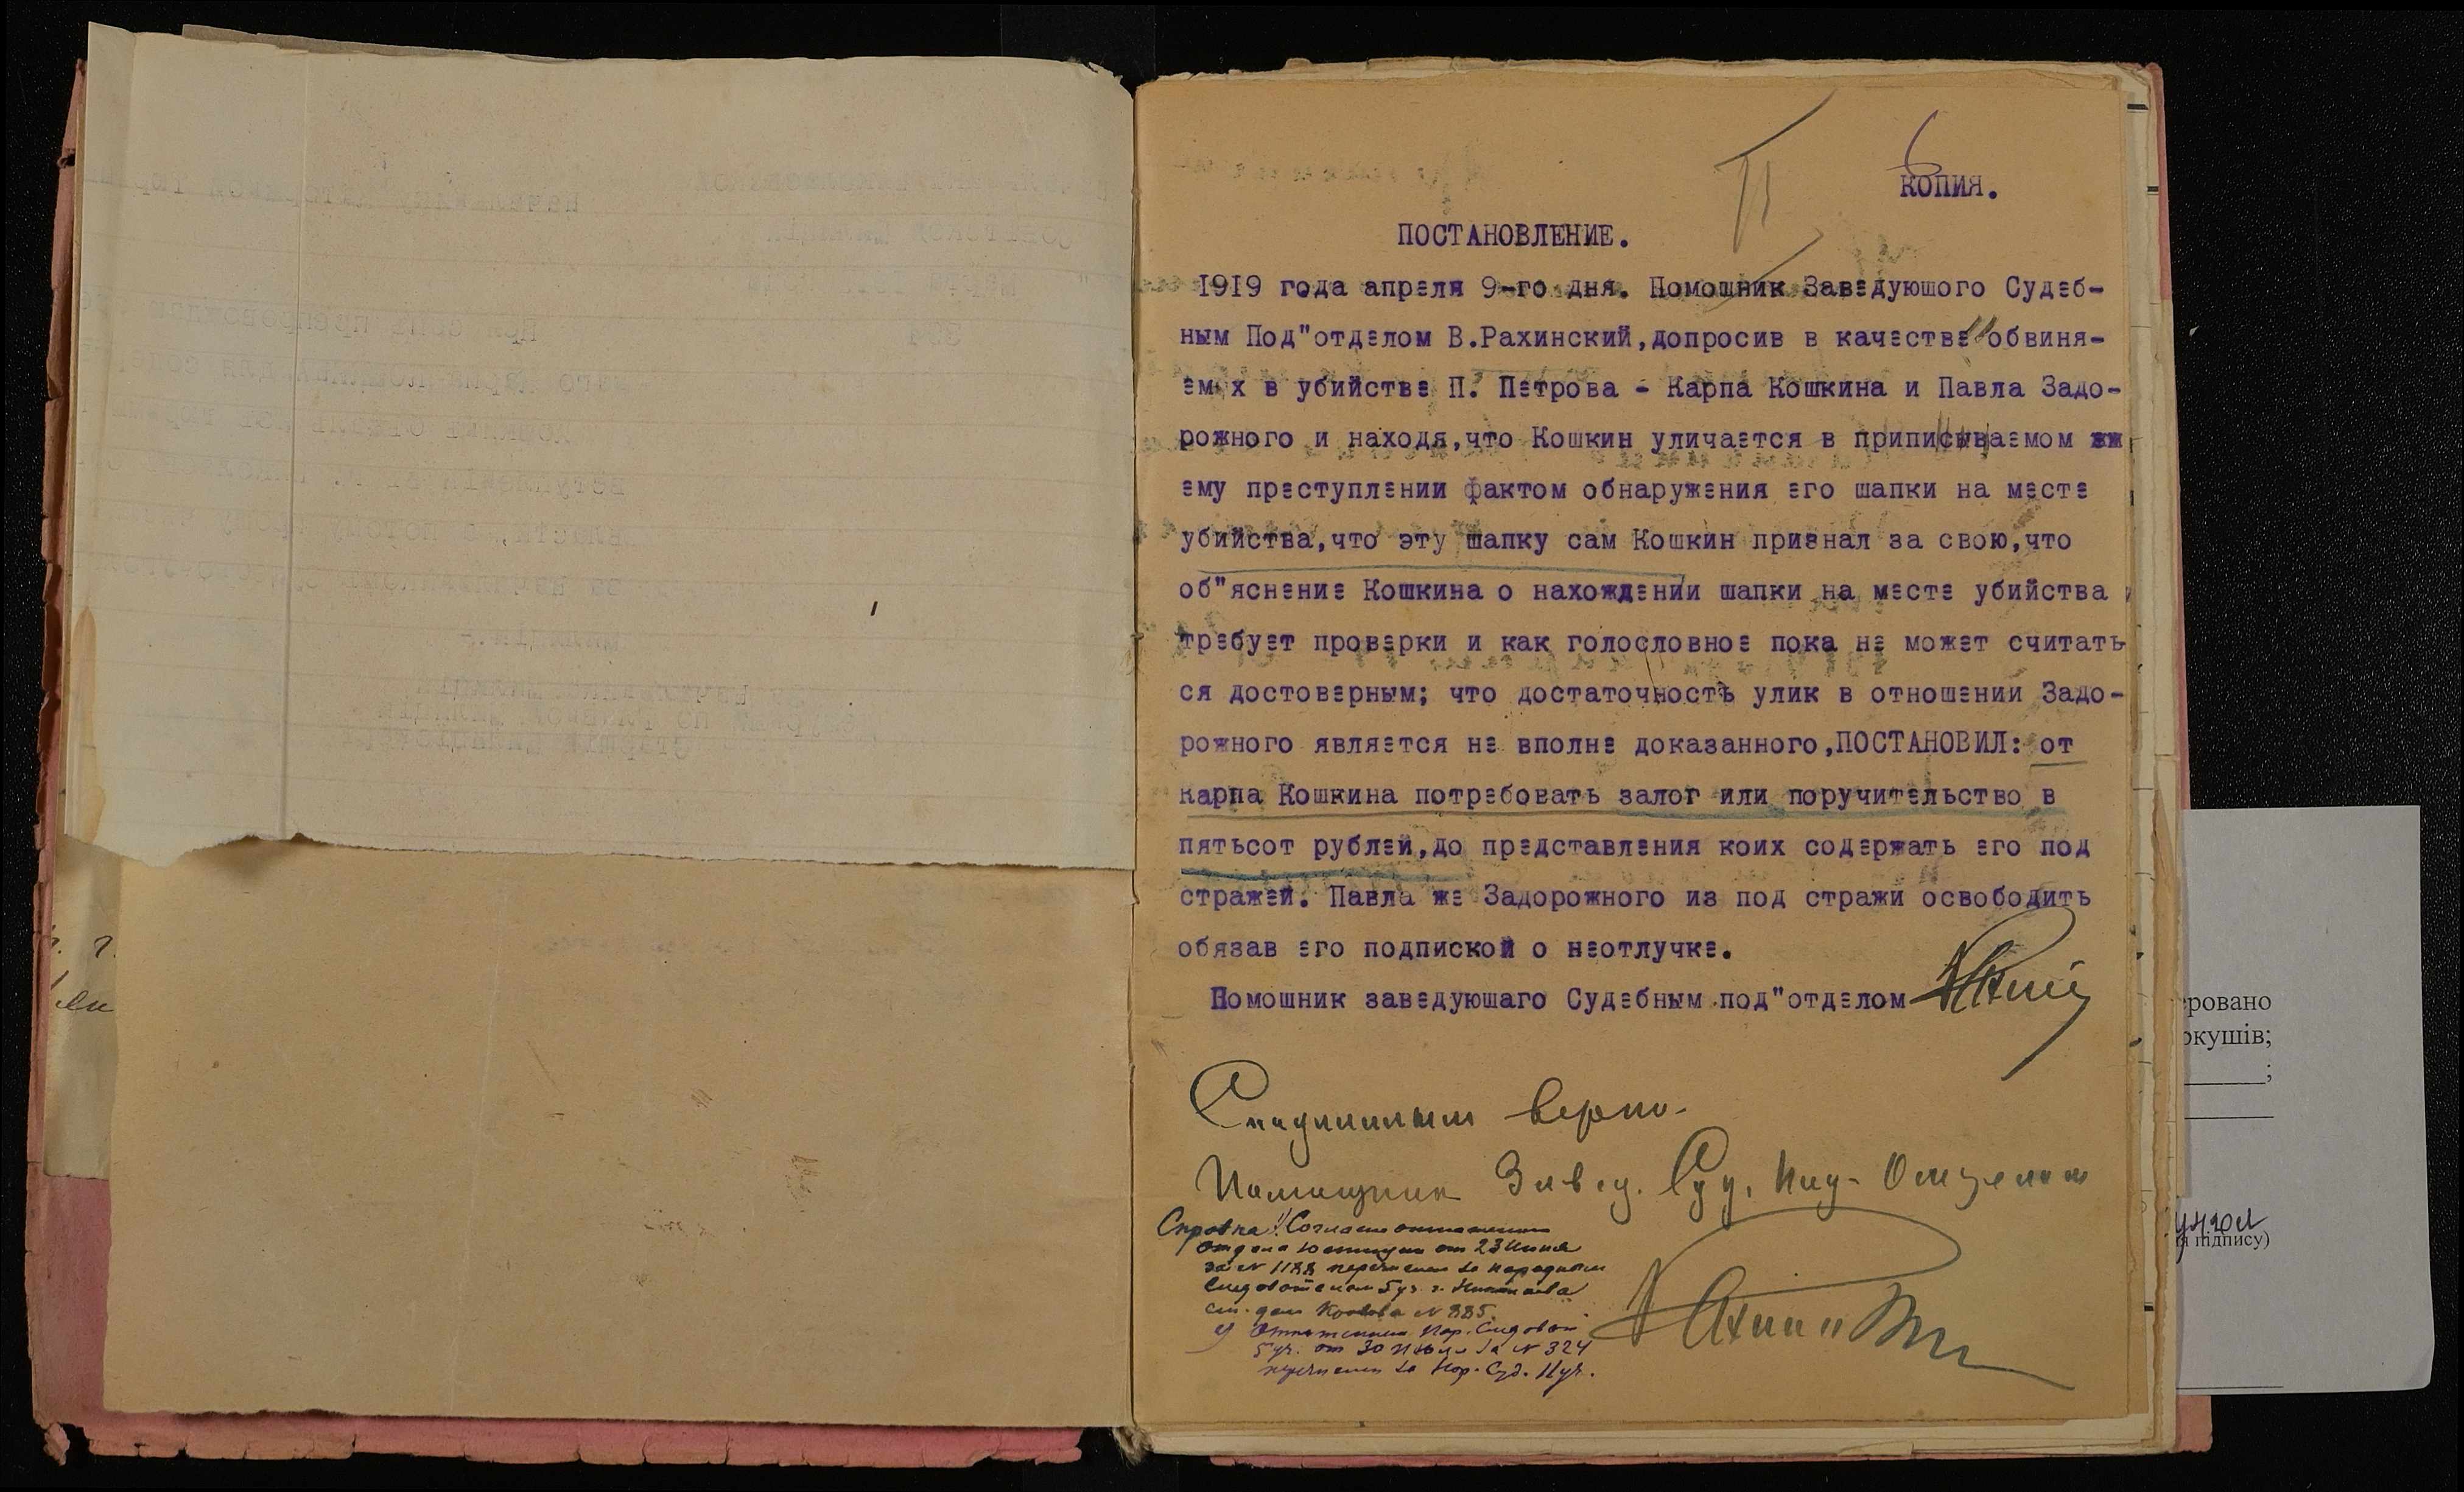 6
КОПИЯ.
ПОСТАНОВЛЕНИЕ.
1919 года апреля 9-го дня. Помошник Заведуюшого Судеб-
ным Под"отделом В.Рахинский,допросив в качестве обвиня-
емых в убийстве П. Петрова - Карпа Кошкина и Павла Задо-
рожного и находя,что Кошкин уличается в приписываемом жж
ему преступлении фактом обнаружения его шапки на месте
убийства,что эту шапку сам Кошкин признал за свою,что
об"яснение Кошкина о нахождении шапки на месте убийства
требует проверки и как голословное пока не может считать-
ся достоверным; что достаточность улик в отношении Задо-
рожного является не вполне доказанного,ПОСТАНОВИЛ: от
Карпа Кошкина потребовать залог или поручительство в
пятьсот рублей,до представления коих содержать его под
стражей. Павла же Задорожного из под стражи освободить
обязав его подпиской о неотлучке.
Помошник заведуюшаго Судебным под"отделом
С подлинным верно.
Помощник Завед. Суд. Под-Отделом
Справка: 1/ Согласно отношения
отдела Юстиции от 23 Июня
за № 1188 перечислен за народным
следователем 5 уч. г. Николаева
от 30 Июля за № 324
перечислен за Нар. Суд. 11 уч.
ровано
ркушів;
;
підпису)